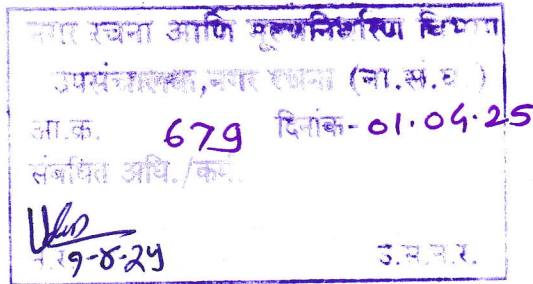 नगर रचना आणि मूल्यनिर्धारण विभाग
उपसंचालक, नगर रचना (ना.सं.घ.)
आ.क. 679 दिनांक - 01.04.25
संबंधित अधि./कर्म.
१-४-२५
उ.स.न.र.